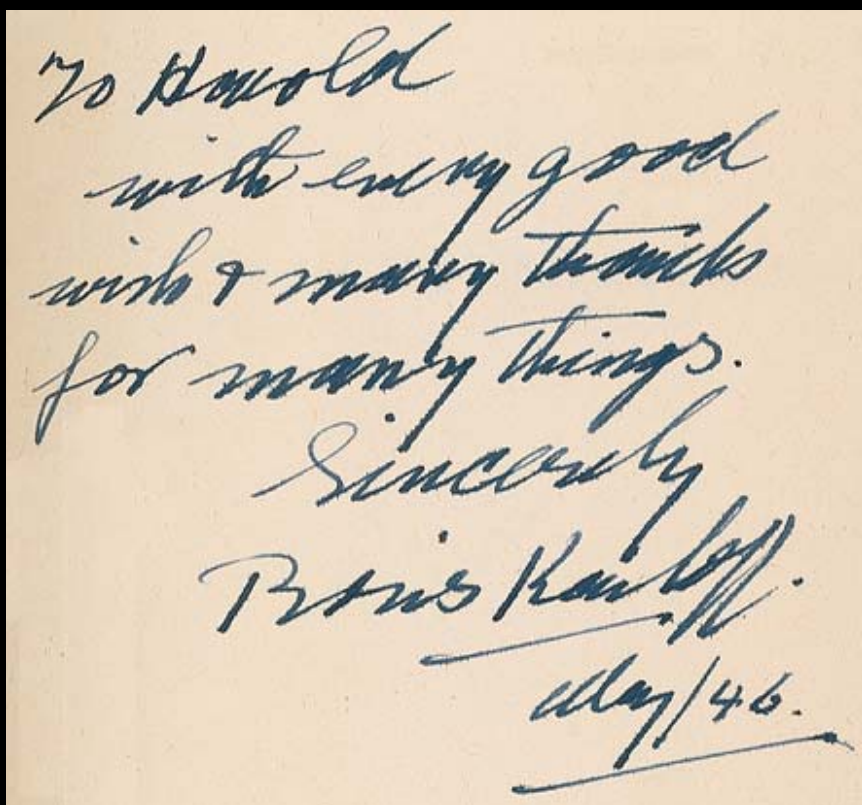 To Harold
with every good
wish & many thanks
for many things.
Sincerely
Boris Karloff.
May/46.